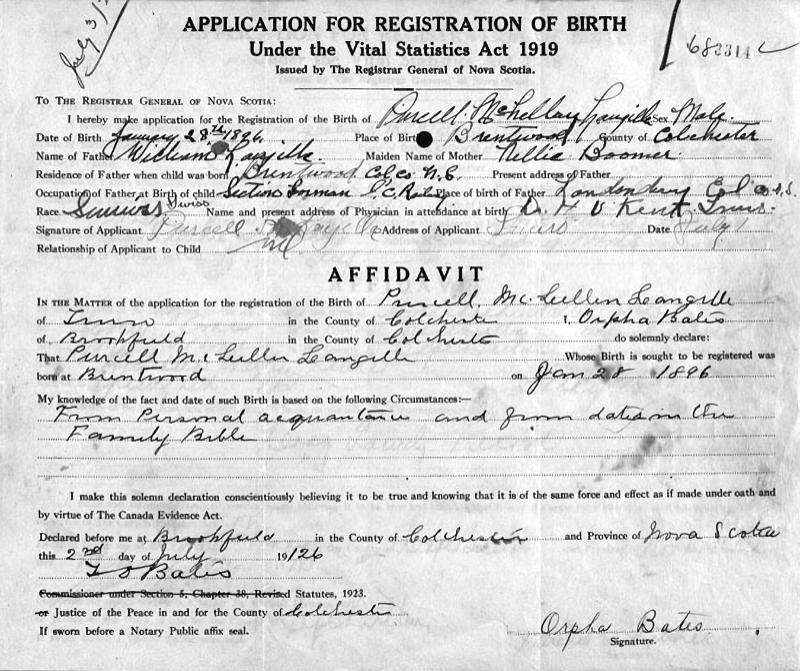 July 3/
683314
APPLICATION FOR REGISTRATION OF BIRTH
Under the Vital Statistics Act 1919
Issued by The Registrar General of Nova Scotia.
TO THE REGISTRAR GENERAL OF NOVA SCOTIA:
I hereby make application for the Registration of the Birth of Purcell McLellan Langille Sex Male
Date of Birth January 28th 1896 Place of Birth Brentwood County of Colchester
Name of Father William Langille Maiden Name of Mother Nellie Boomer
Residence of Father when child was born Brentwood Col Co N.S. Present address of Father
Occupation of Father at Birth of child Section Forman I.C. Place of birth of Father Londonderry Col Co N.S.
Race Swiss Name and present address of Physician in attendance at birth Dr H V Kent Truro
Signature of Applicant Purcell Langille Address of Applicant Truro Date July 1
Relationship of Applicant to Child
AFFIDAVIT
IN THE MATTER of the application for the registration of the Birth of Purcell, McLellan Langille
of Truro in the County of Colchester I, Orpha Bates
of Brookfield in the County of Colchester do solemnly declare:
That Purcell McLellan Langille Whose Birth is sought to be registered was
born at Brentwood on Jan 28 1896
My knowledge of the fact and date of such Birth is based on the following Circumstances:—
From Personal acquantance and from dates in the
Family Bible
I make this solemn declaration conscientiously believing it to be true and knowing that it is of the same force and effect as if made under oath and
by virtue of The Canada Evidence Act.
Declared before me at Brookfield in the County of Colchester and Province of Nova Scotia
this 2nd day of July 1926
Bates
Commissioner under Section 5, Chapter 38, Revised Statutes, 1923.
or Justice of the Peace in and for the County of Colchester
If sworn before a Notary Public affix seal.
Orpha Bates
Signature.